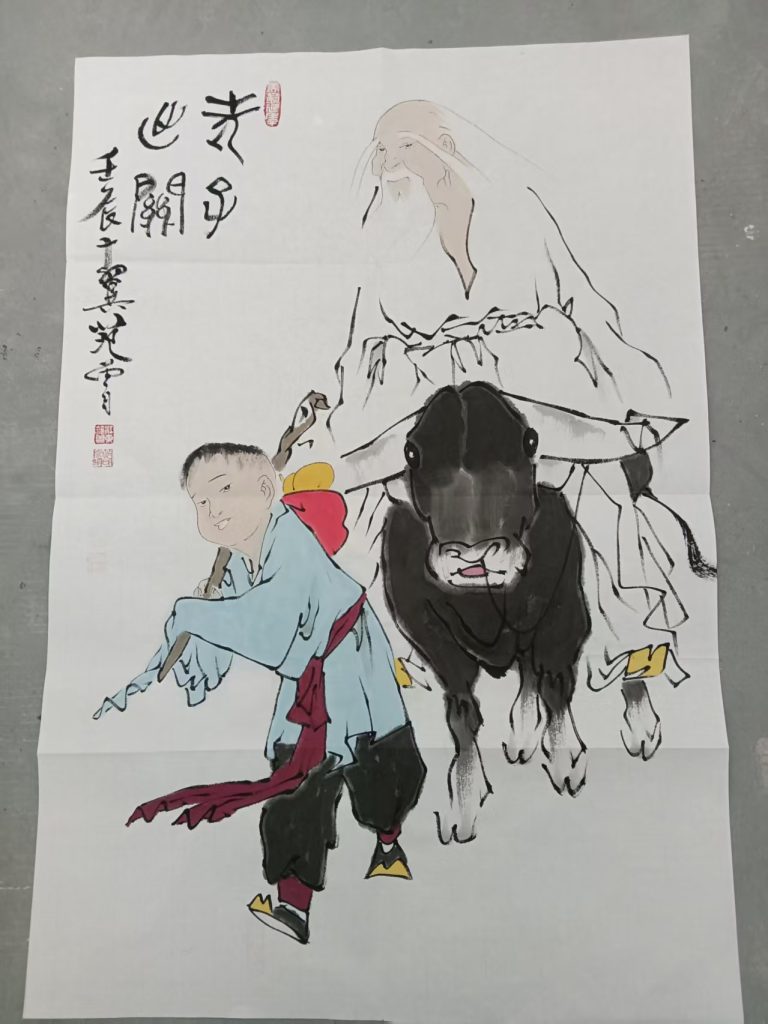 老子
出關
壬辰十翼范曾